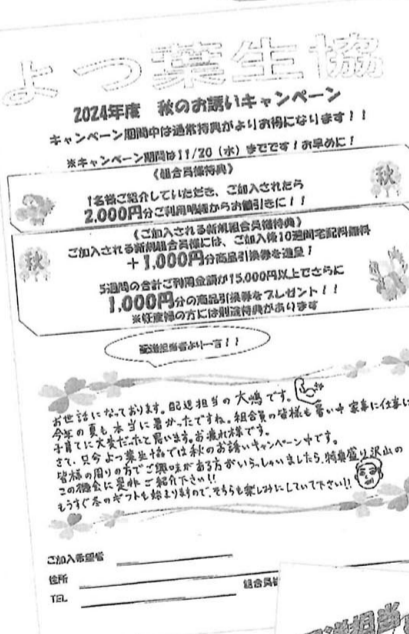 よつ葉生協
2024年度 秋のお誘いキャンペーン
キャンペーン期間中は通常特典がよりお得になります！！
※キャンペーン期間は11/20（水）までです！お早めに！
《組合員様特典》
1名様ご紹介していただき、ご加入されたら
2,000円分ご利用明細からお値引きに！！
秋
《ご加入される新規組合員様特典》
ご加入される新規組合員様には、ご加入後10週間宅配料無料
＋1,000円分商品引換券を進呈！
5週間の合計ご利用金額が15,000円以上でさらに
1,000円分の商品引換券をプレゼント！！
※妊産婦の方には別途特典があります
秋
配送担当者より一言！！
お世話になっております。配送担当の大嶋です。
今年の夏も本当に暑かったですね。組合員の皆様も暑い中家事に仕事に
子育てに大変だったと思います。お疲れ様です。
さて、只今よつ葉生協では秋のお誘いキャンペーン中です。
皆様の周りの方でご興味がある方がいらっしゃいましたら、特典盛り沢山の
この機会に是非ご紹介下さい!!
もうすぐ冬のギフトも始まりますので、そちらも楽しみにしていて下さい!!
ご加入希望者
住所
TEL
組合員
配送担当